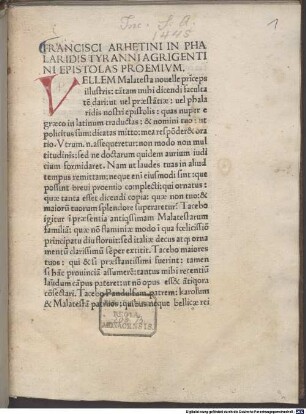 Inc. S. A.
1445
1
FRANCISCI ARHETINI IN PHA
LARIDIS TYRANNI AGRIGENTI
NI EPISTOLAS PROEMIVM.
VELLEM Malatesta nouelle prīceps
illustris: tātam mihi dicendi faculta
tē dari: ut uel præstātiæ: uel phala
ridis nostri epistolis: quas nuper e
græco in latinum traductas: & nomini tuo
policitus sum: dicatas mitto: mea respōderet ora
tio. Vtrum. n. assequeretur: non modo non mul
titudinis: sed ne doctarum quidem aurium iudi
cium formidaret. Nam ut laudes tuas in aliud
tempus remittam: neque eni eiusmodi sint: que
possint breui proemio complecti: qui ornatus:
quæ tanta esset dicendi copia: quæ non tuo: &
maiorū tuorum splendore superaretur? Tacebo
igitur ī præsentia antiqssimam Malatestarum
familiā: quæ nō flaminiæ modo i qua fœlicissīo
principatu diu floruit: sed italiæ decus atq; orna
mentū clarissimū sēper extitit. Tacebo maiores
tuos: qui & si præstantissimi fuerint: tamen
si hāc prouinciā assumerē: tantus mihi retentiū
laudum cāpus pateret: ut nō opus essēt ātiqora
cōsectari. Tacebo Pandulfum patrem: karolum
& Malatestā patruos: quibus neque bellicæ rei